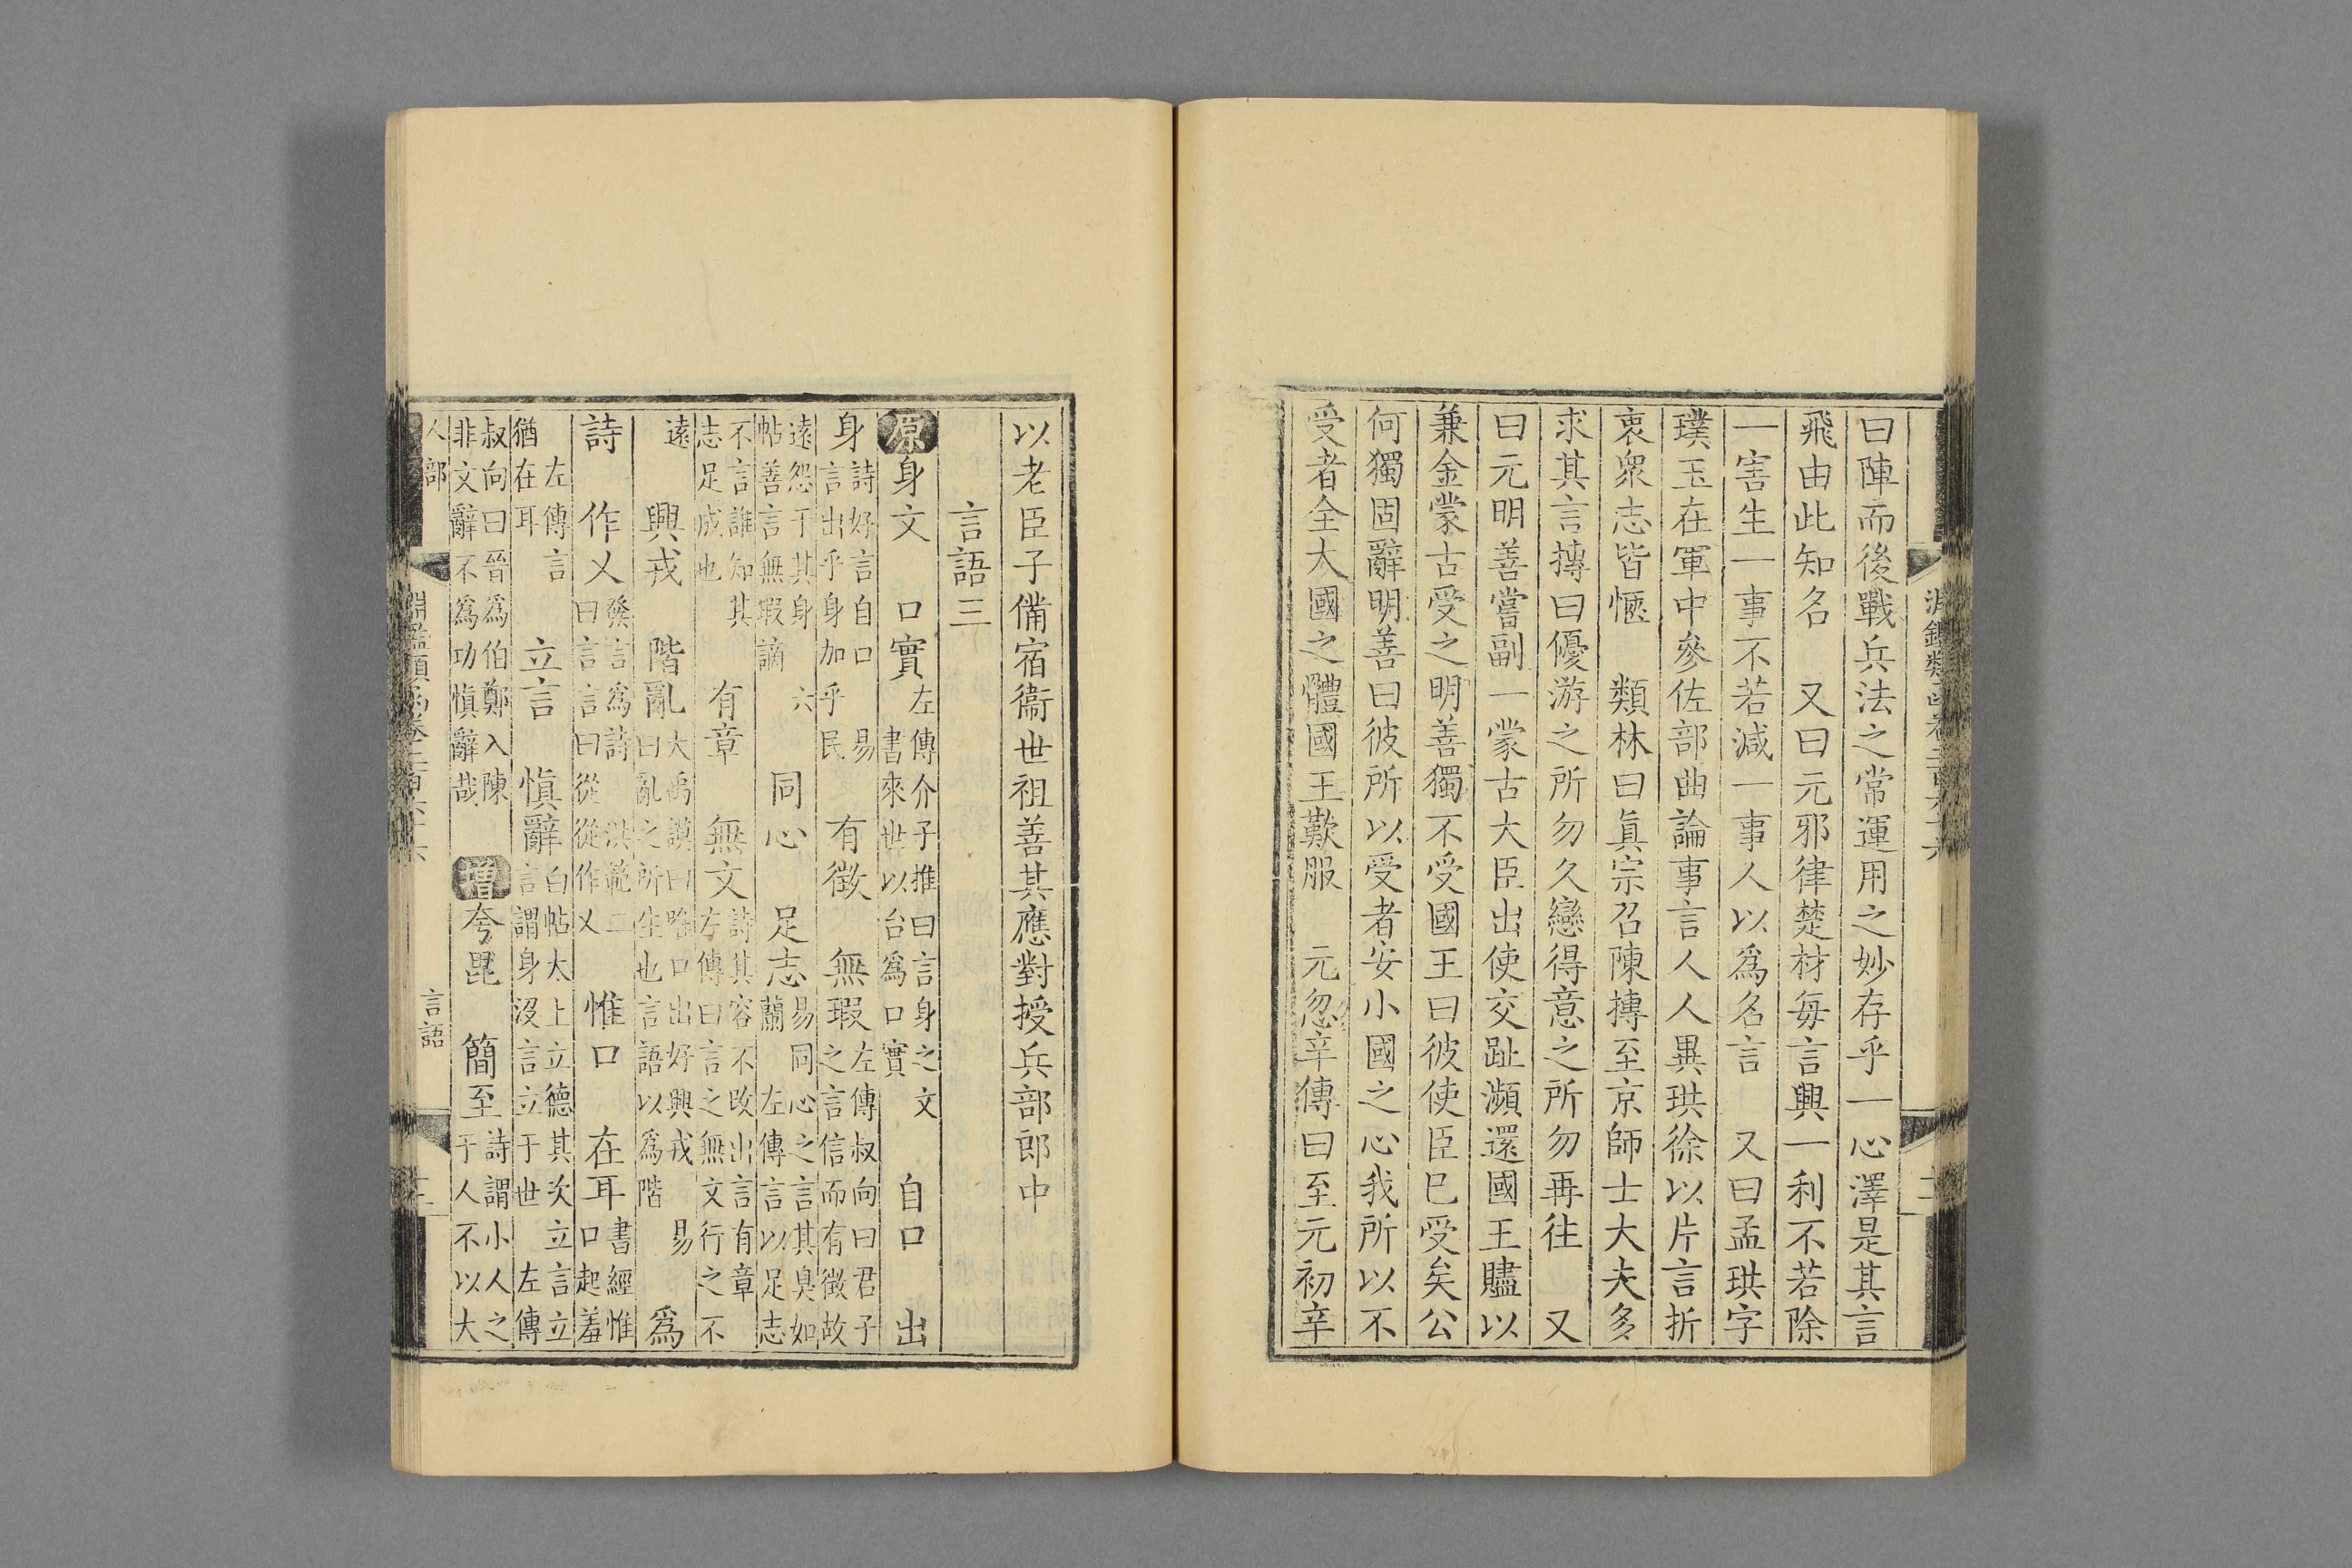 曰陣而後戰兵法之常運用之妙存乎一心澤是其言
飛由此知名　又曰元邪律楚材每言興一利不若除
一害生一事不若減一事人以爲名言　又曰孟珙字
璞玉在軍中參佐部曲論事言人人異珙徐以片言折
衷衆志皆愜　類林曰眞宗召陳摶至京師士大夫多
求其言摶曰優游之所勿久戀得意之所勿再往　又
曰元明善嘗副一蒙古大臣出使交趾瀕還國王贐以
兼金蒙古受之明善獨不受國王曰彼使臣巳受矣公
何獨固辭明善曰彼所以受者安小國之心我所以不
受者全大國之體國王歎服　元忽辛傳曰至元初辛
以老臣子備宿衞世祖善其應對授兵部郎中
言語三
原身文　口實左傳介子推曰言身之文　書來世以台爲口實　自口　出
身詩好言自口　易言出乎身加乎民　有徵　無瑕左傳叔向曰君子之言信而有徵故
遠怨于其身　六帖善言無瑕謫　同心　足志易同心之言其臭如蘭　左傳言以足志
不言誰知其志足成也　有章　無文詩其容不改出言有章　左傳曰言之無文行之不
遠　興戎　階亂大禹謨曰唯口出好興戎　易曰亂之所生也言語以爲階　爲
詩　作乂發言爲詩　洪範二曰言言曰從從作乂　惟口　在耳書經惟口起羞
左傳言猶在耳　立言　愼辭白帖太上立德其次立言言立謂身沒言立于世　左傳
叔向曰晉爲伯鄭入陳非文辭不爲功愼辭哉　增夸毘　簡至詩謂小人之于人不以大
人部
言語